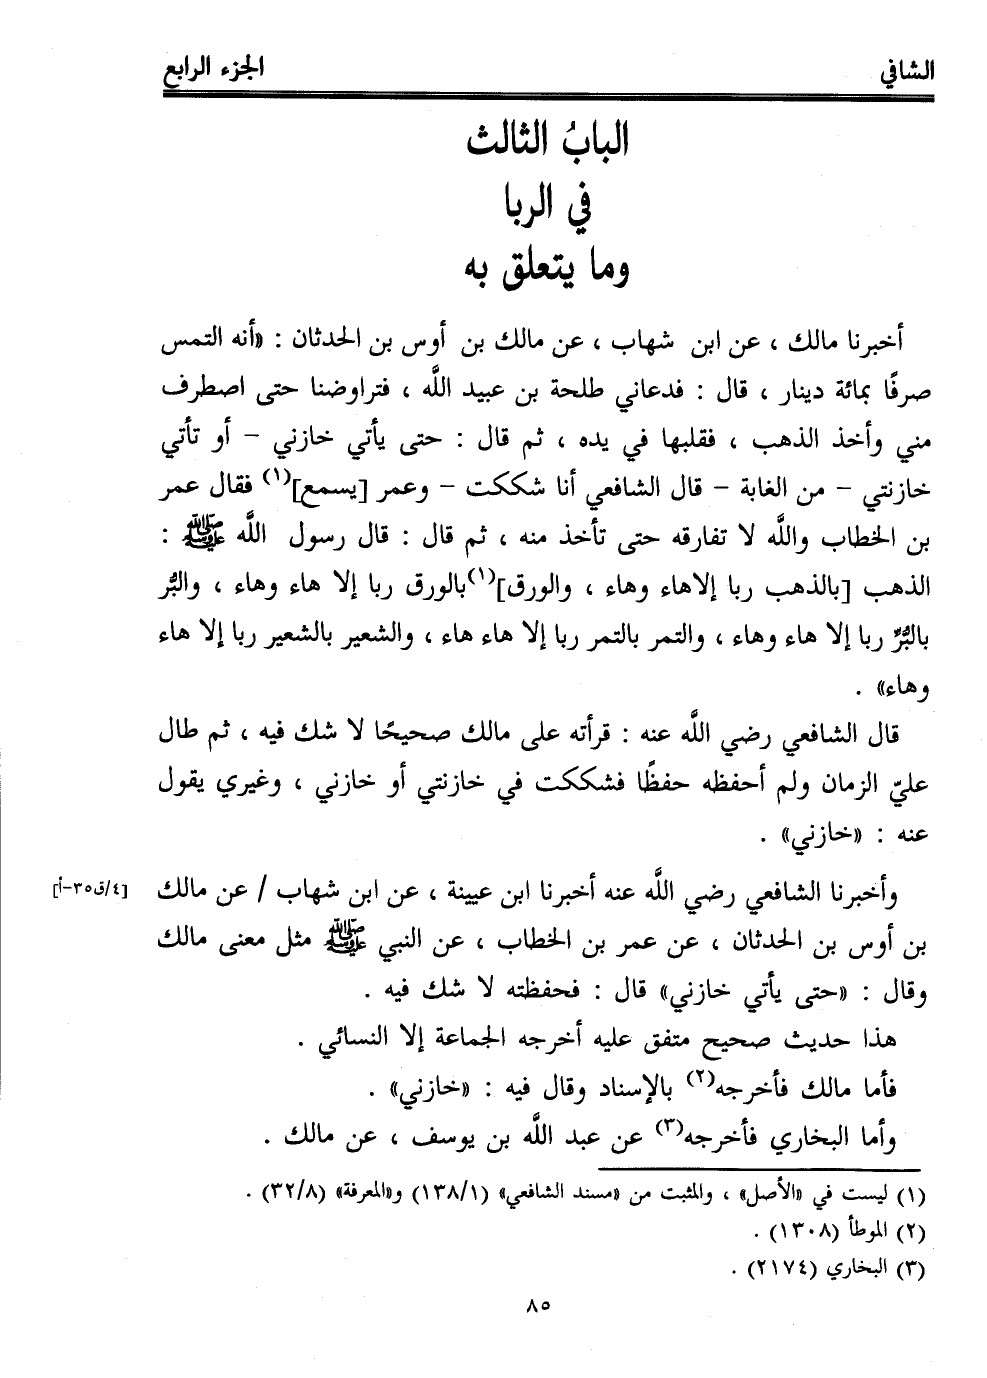 الشافي
الجزء الرابع
البابُ الثالث
في الربا
وما يتعلق به
أخبرنا مالك ، عن ابن شهاب ، عن مالك بن أوس بن الحدثان : «أنه التمس
صرفًا بمائة دينار ، قال : فدعاني طلحة بن عبيد اللَّه ، فتراوضنا حتى اصطرف
مني وأخذ الذهب ، فقلبها في يده ، ثم قال : حتى يأتي خازني – أو تأتي
خازنتي – من الغابة – قال الشافعي أنا شككت – وعمر [يسمع](١) فقال عمر
بن الخطاب واللَّه لا تفارقه حتى تأخذ منه ، ثم قال : قال رسول اللَّه ﷺ :
الذهب [بالذهب ربا إلاهاء وهاء ، والورق](١)بالورق ربا إلا هاء وهاء ، والبُر
بالبُرِّ ربا إلا هاء وهاء ، والتمر بالتمر ربا إلا هاء هاء ، والشعير بالشعير ربا إلا هاء
وهاء» .
قال الشافعي رضي اللَّه عنه : قرأته على مالك صحيحًا لا شك فيه ، ثم طال
عليّ الزمان ولم أحفظه حفظًا فشككت في خازنتي أو خازني ، وغيري يقول
عنه : «خازني» .
وأخبرنا الشافعي رضي اللَّه عنه أخبرنا ابن عيينة ، عن ابن شهاب / عن مالك
[٤/ق٣٥-أ]
بن أوس بن الحدثان ، عن عمر بن الخطاب ، عن النبي ﷺ مثل معنى مالك
وقال : «حتى يأتي خازني» قال : فحفظته لا شك فيه .
هذا حديث صحيح متفق عليه أخرجه الجماعة إلا النسائي .
فأما مالك فأخرجه(٢) بالإسناد وقال فيه : «خازني» .
وأما البخاري فأخرجه(٣) عن عبد اللَّه بن يوسف ، عن مالك .
(١) ليست في «الأصل» ، والمثبت من «مسند الشافعي» (١٣٨/١) و«المعرفة» (٣٢/٨) .
(٢) الموطأ (١٣٠٨) .
(٣) البخاري (٢١٧٤) .
٨٥